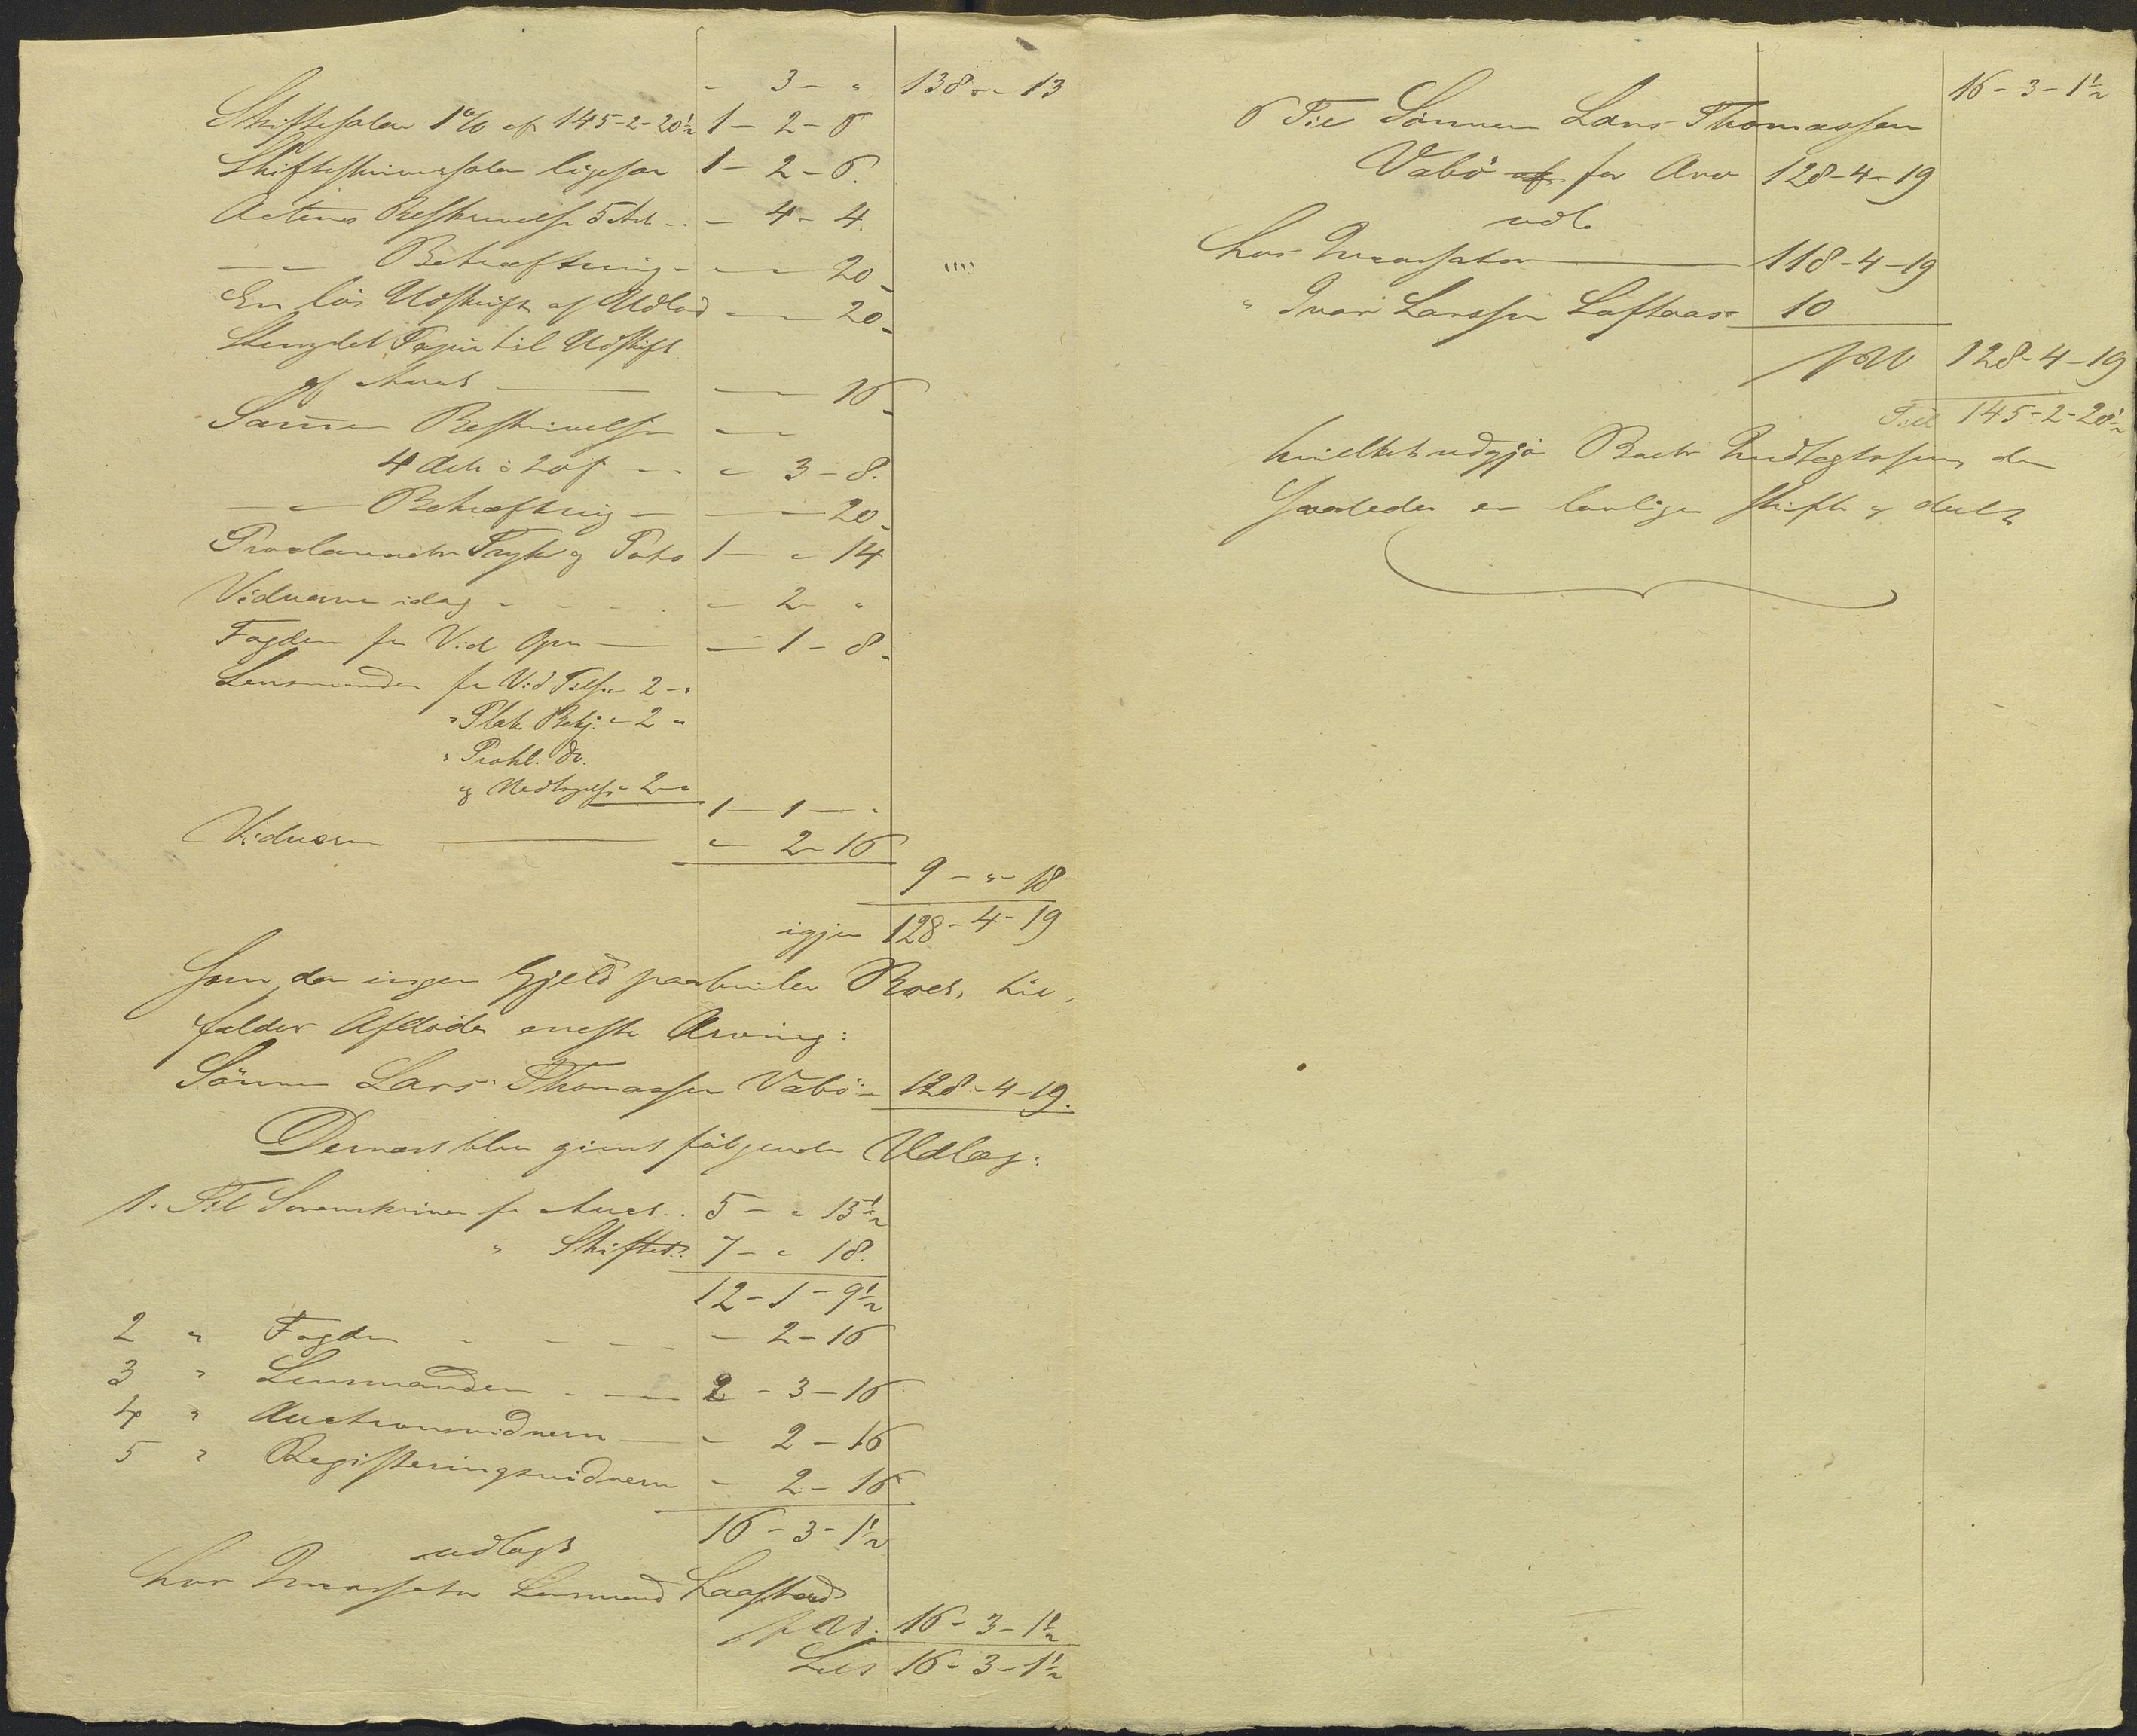 - 3 - " 138 - " - 13
Skiftesalær 1% af 145-2-20½ 1 - 2 - 6
Skifteskriversalær ligesaa 1 - 2 - 6.
Actens Beskrivelse 5 Ark - 4 - 4.
— " Bekræftning - - 20
En løs Udskrift af Udlæg - 20
Stemplet Papir til Udskrift
af Auct. — 16
Sammes Beskrivelse
4 Ark à 20 s - 3 - 8.
— " Bekræftning — 20
Proclamaets Trykn og Porto 1 - " 14
Vidnerne idag - 2 "
Fogden for Vid Opn — 1 - 8
Lensmanden for Vid Tilsyn 2 - "
" Plak. Bekj. " 2 "
" Prokl. do.
og Nedtagelse 2 - "
1 - 1 - "
Vidnerne — " 2 - 16
9 - " - 18
igjen 128 - 4 - 19
som, da ingen Gjeld paahviler Boet, til-
falder Afdødes eneste Arving:
Sønnen Lars Thomassen Vabø 128-4-19.
Dernæst blev givet følgende Udlæg:
1. Til Sorenskriveren for Auct. 5 - " 15½
" Skiftet 7 - " 18.
12 - 1 - 9½
2 " Fogden - 2 - 16
3 " Lensmanden - 2 - 3 - 16
4 " Auctionsvidnerne - 2 - 16
5 " Registreringsvidnerne - 2 - 16
16 - 3 - 1½
udlagt
hos Incassator Lensmand Laastad
16 - 3 - 1½
Lats 16 - 3 - 1½
16 - 3 - 1½
6 Til Sønnen Lars Thomassen
Vabø af for Arv 128-4-19
udl.
hos Incassator — 118-4-19
" Ivar Larssen Løftaas 10
128-4-19
Till 145-2-20½
hvilket udgjør Boets Indtægtssum, der
saaledes er lovligen skiftet og deelt